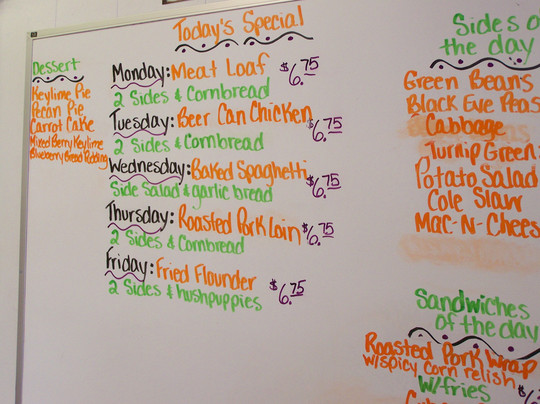 Today's Special
Dessert
Keylime Pie
Pecan Pie
Carrot Cake
Mixed Berry Keylime
Blueberry Bread Pudding
Monday: Meat Loaf $6.75
2 Sides & Cornbread
Tuesday: Beer Can Chicken $6.75
2 Sides & Cornbread
Wednesday: Baked Spaghetti $6.75
Side Salad & garlic bread
Thursday: Roasted Pork Loin $6.75
2 Sides & Cornbread
Friday: Fried Flounder $6.75
2 Sides & hushpuppies
Sides o
the day
Green Beans
Black Eye Peas
Cabbage
Turnip Greens
Potato Salad
Cole Slaw
Mac-N-Chees
Sandwiches
of the day
Roasted Pork Wrap
w/spicy corn relish $6
w/fries